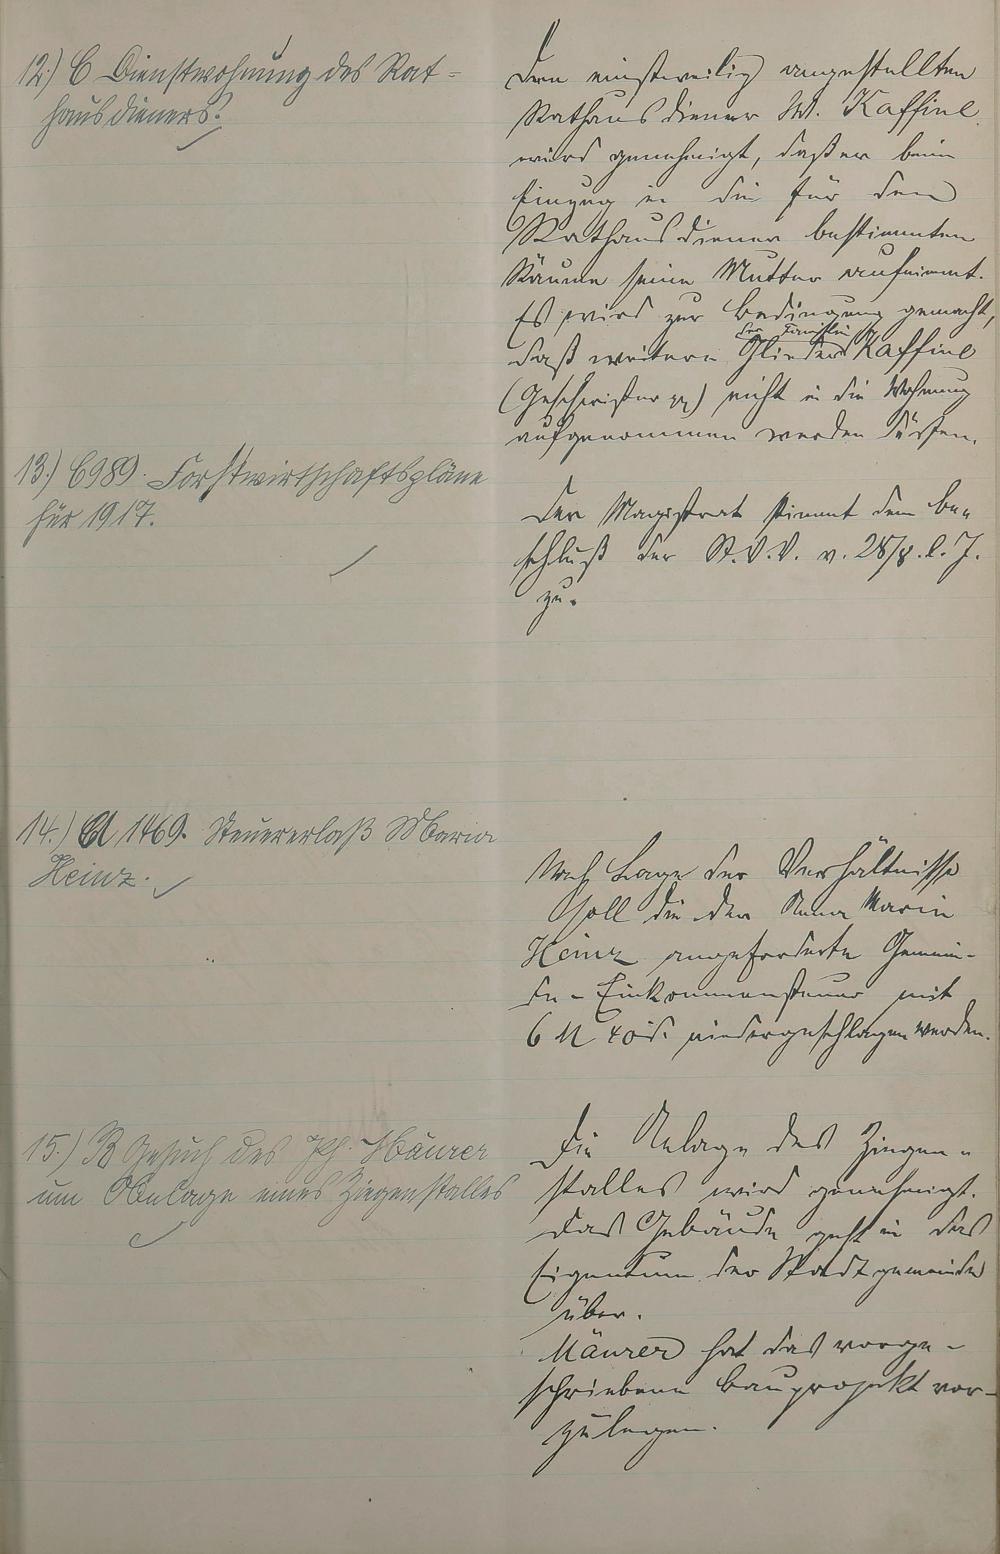 12.) C Dienstwohnung des Rat-
hausdieners.
Dem einstweilig angestellten
Rathausdiener W. Kaffine
wird genehmigt, daß er beim
Einzug in die für den
Rathausdiener bestimmten
Räume seine Mutter aufnimmt.
Es wird zur Bedingung gemacht,
der Familie
daß weitere Glieder Kaffine
(Geschwister pp) nicht in die Wohnung
aufgenommen werden dürfen.
13.) C 989. Forstwirtschaftspläne
für 1917.
Der Magistrat stimmt dem Be-
schluß der St.V.V. v. 28/8. l. J.
zu.
14.) A 1469. Steuererlaß Maria
Heinz.
Nach Lage der Verhältnisse
soll die der Anna Maria
Heinz angeforderte Gemein-
de-Einkommensteuer mit
6 M 40 niedergeschlagen werden.
15.) B Gesuch des Ph. Mäurer
um Anlage eines Ziegenstalles
Die Anlage des Ziegen-
stalles wird genehmigt.
Das Gebäude geht in das
Eigentum der Stadtgemeinde
über.
Mäurer hat das vorge-
schriebene Bauprojekt vor-
zulegen.